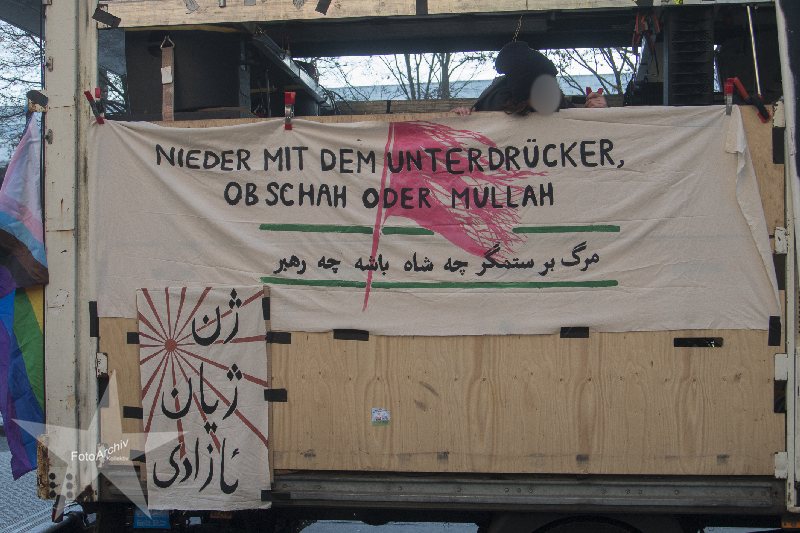 NIEDER MIT DEM UNTERDRÜCKER,
OB SCHAH ODER MULLAH
مرگ بر ستمگر چه شاه باشه چه رهبر
ژن
ژیان
ئازادی
FotoArchiv
Kollektiv